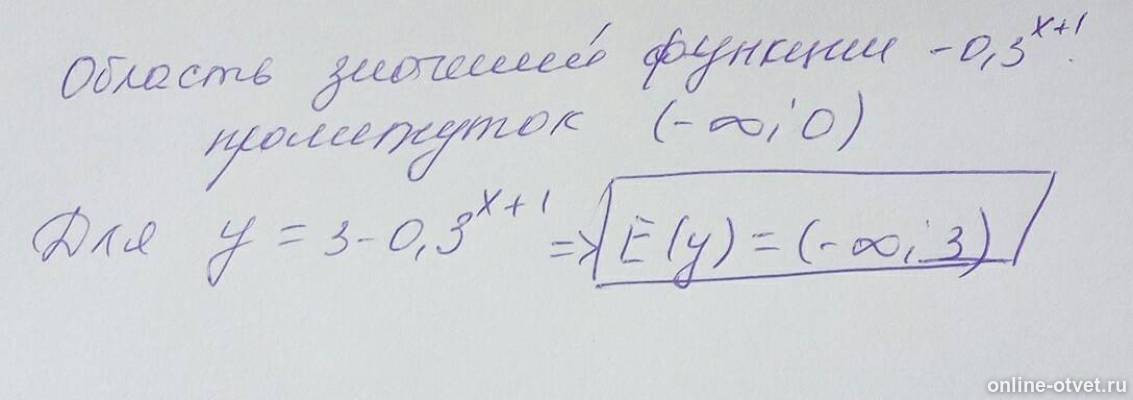 Область значений функции -0,3^{x+1}.
промежуток (-∞; 0)
Для y = 3 - 0,3^{x+1} => E(y) = (-∞; 3)
online-otvet.ru